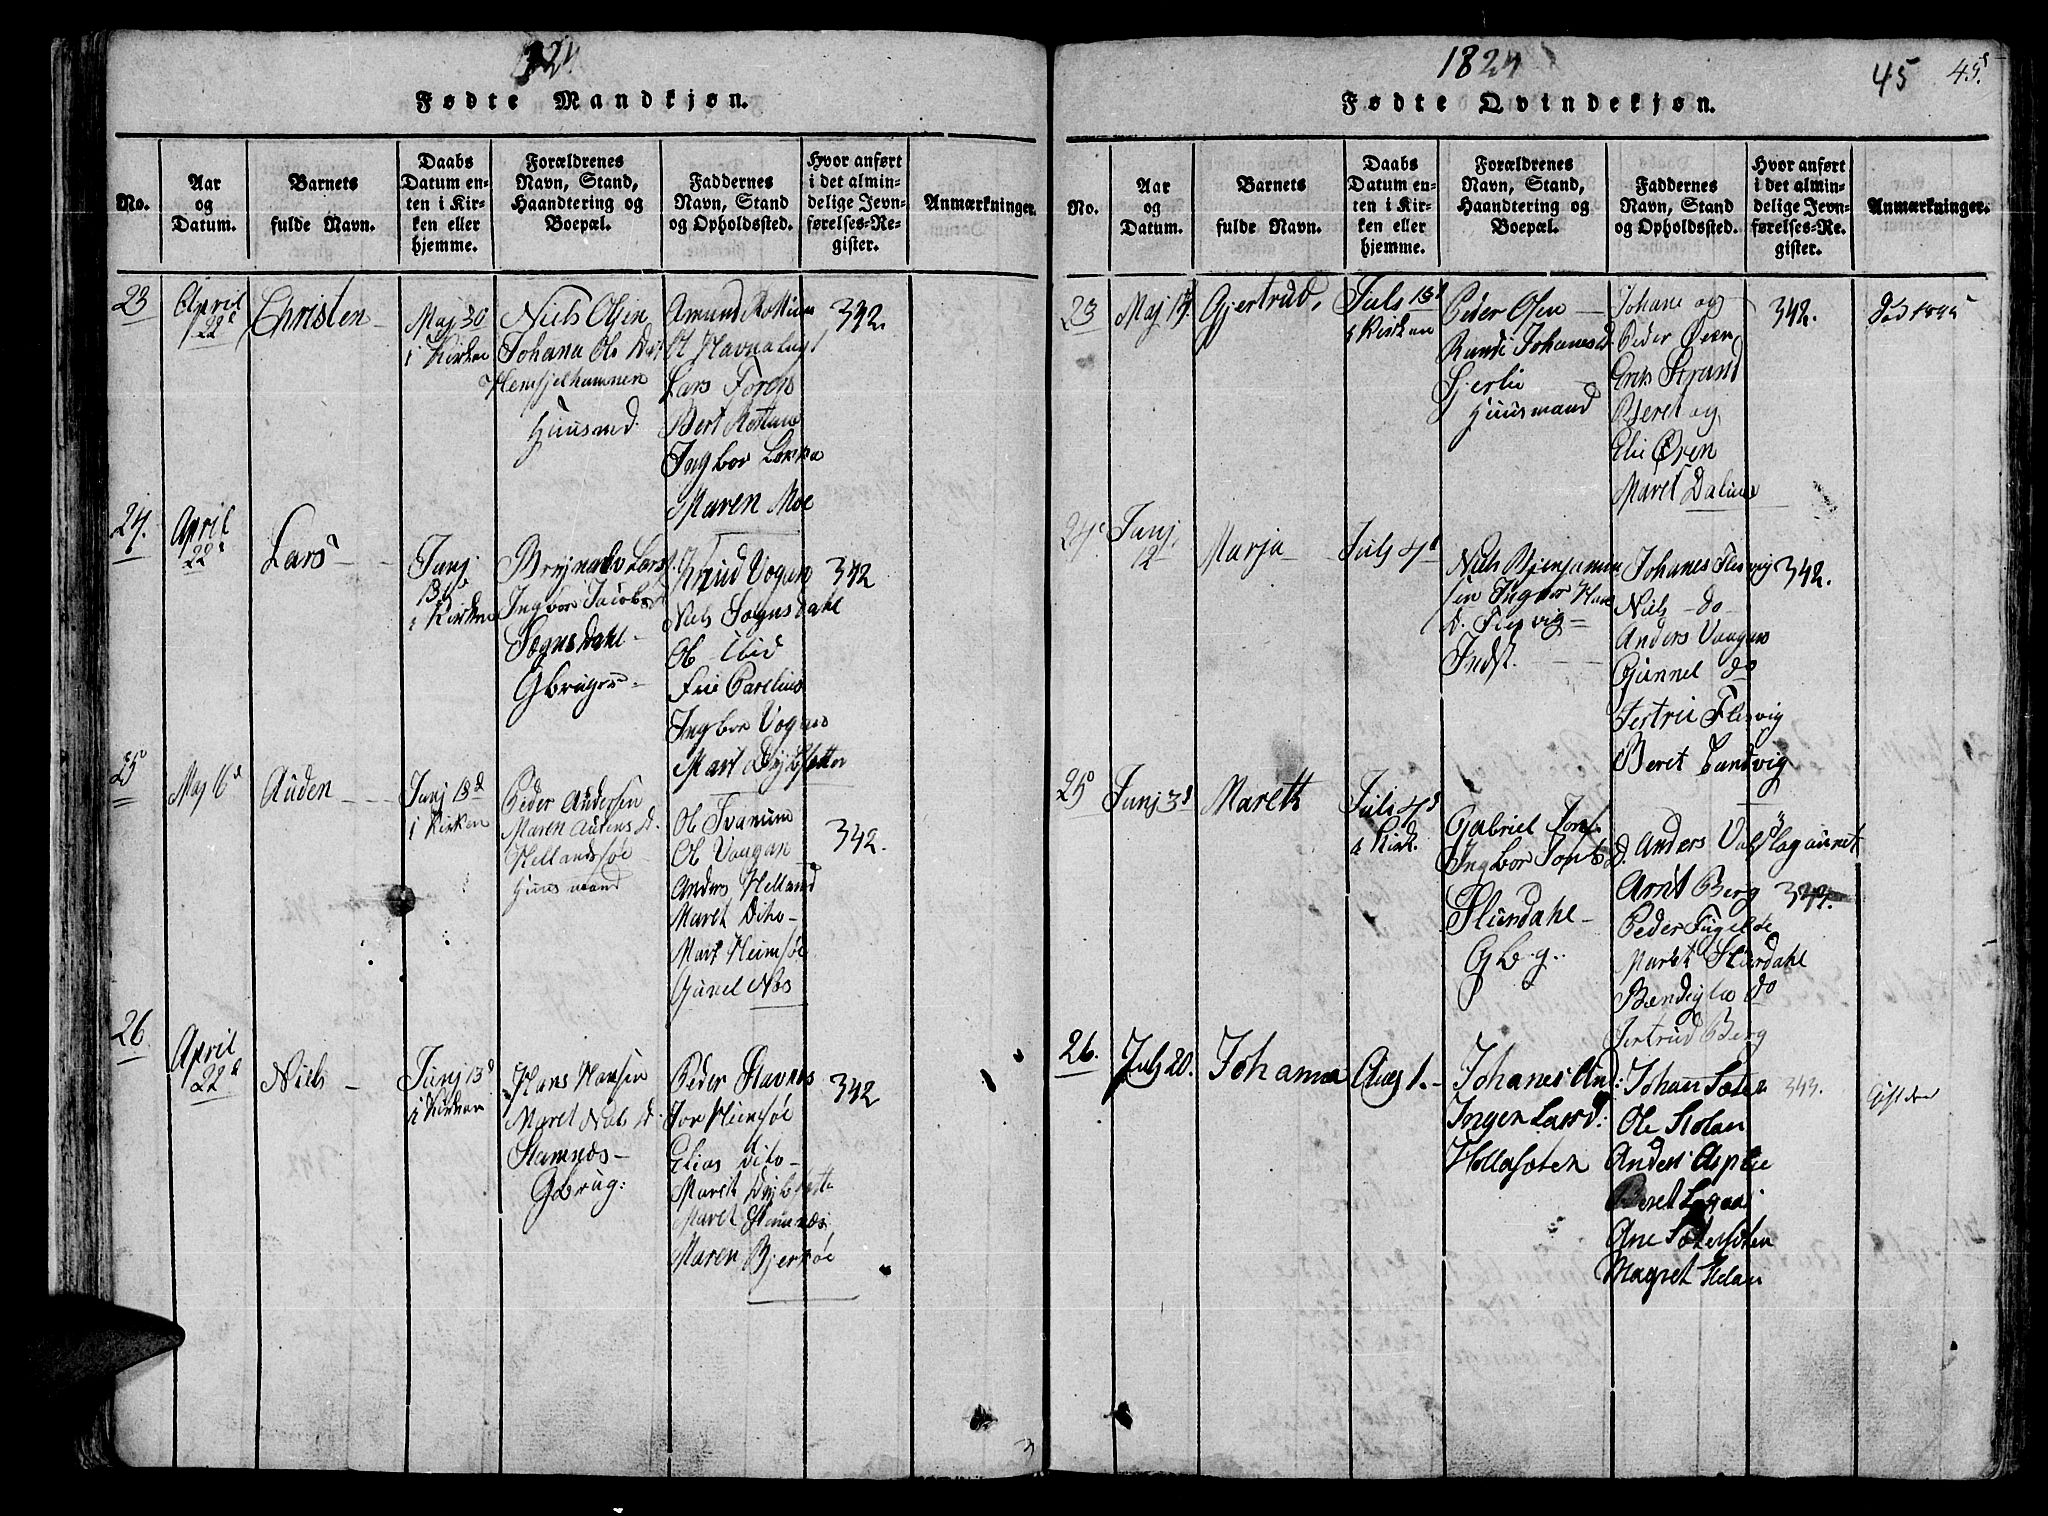 1824
Fødte Mandkjøn.
No.
Aar
og
Datum.
Barnets
fulde Navn.
Daabs
Datum en-
ten i Kir-
ken eller
hjemme.
Forældrenes
Navn, Stand,
Haandtering og
Boepæl.
Faddernes
Navn, Stand
og Opholdssted.
Hvor anført
i det almin-
delige Jevn-
førelses-Re-
gister.
Anmærkninger.
23
April
22
Christen
Maj 30
i Kirken
Niels Olsen
Johana Ols D
Hemsjelhamnen
Huusmd.
Amund
Ol
Lars
Bert
Ingbor
Maren Moe
342.
24.
April
22
Lars
Junj
13
i Kirken
Brynalv Lars
Ingbor Jacobs
Sognsdahl
Gbruger
Knud Vogan
Niels Sognsdahl
Ol Ibid
Frie Parelius
Ingbor Vogan
Mart
342
25
Maj 6
Auden
Junj 13
i Kirken
Peder Andersen
Maren Audens D.
Hellandsøe
Huusmand
Ol Tvanum
Ol Vaagan
Anders Helland
Maret Dito
Mart Heimsøe
Gunel Nes
342.
26
April
22
Niels
Junj 13
i Kirken
Hans Hansen
Maret Niels D
Stamnæs
Gbrug:
Peder Stavnes
Jon Heimsøe
Elias dito
Maret
Maret Stamnæs
Maren Bjerkøe
342
1824
45
45
Fødte Qvindekjøn.
No.
Aar
og
Datum.
Barnets
fulde Navn.
Daabs
Datum en-
ten i Kir-
ken eller
hjemme.
Forældrenes
Navn, Stand,
Haandtering og
Boepæl.
Faddernes
Navn, Stand
og Opholdssted.
Hvor anført
i det almin-
delige Jevn-
førelses-Re-
gister.
Anmærkninger.
23
Maj
Gjertrud,
Juls 13
i Kirken
Peder Olsen
Randi Johanes D.
Huusmand
Johane og
Peder Øren
Erik Strand
Beret og
Eli Øren
Maret
342.
24
Junj
12
Marja
Juls 4
Niels Bjenjamin
sen Ingbor Hans
D. Flesvig
Indst.
Johanes Flesvig
Niels do
Anders Vaagan
Gunnel do
Jertrü Flesvig
Beret Sandvig
342.
25
Junj 3
Mareth
Juli 4
i Kirk.
Gabriel Jons
Ingbor Jons D.
Slürdahl
Gb.g.
Anders Valslagaunet
Arnt Berg
Peder
Marith Slürdahl
Bendigta do
Jertrud Berg
342.
26.
Juls 20.
Johanna
Aug 1.
Johanes And:
Ingen Lars D:
Hollasæter
Johan Sæter
Ole Stolan
Anders Asplie
Beret
Ane
Magret Stolan
343.